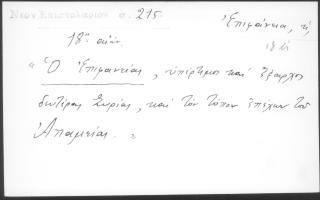 Νεον Επιστολαριον σ. 215.
Ἐπιφάνεια, ἡ
18ος αἰών.
18 αἰ
" Ὁ Ἐπιφανείας, ὑπέρτιμος καὶ ἔξαρχος
δευτέρας Συρίας, καὶ τὸν τόπον ἐπέχων τοῦ
Ἀπαμείας. "